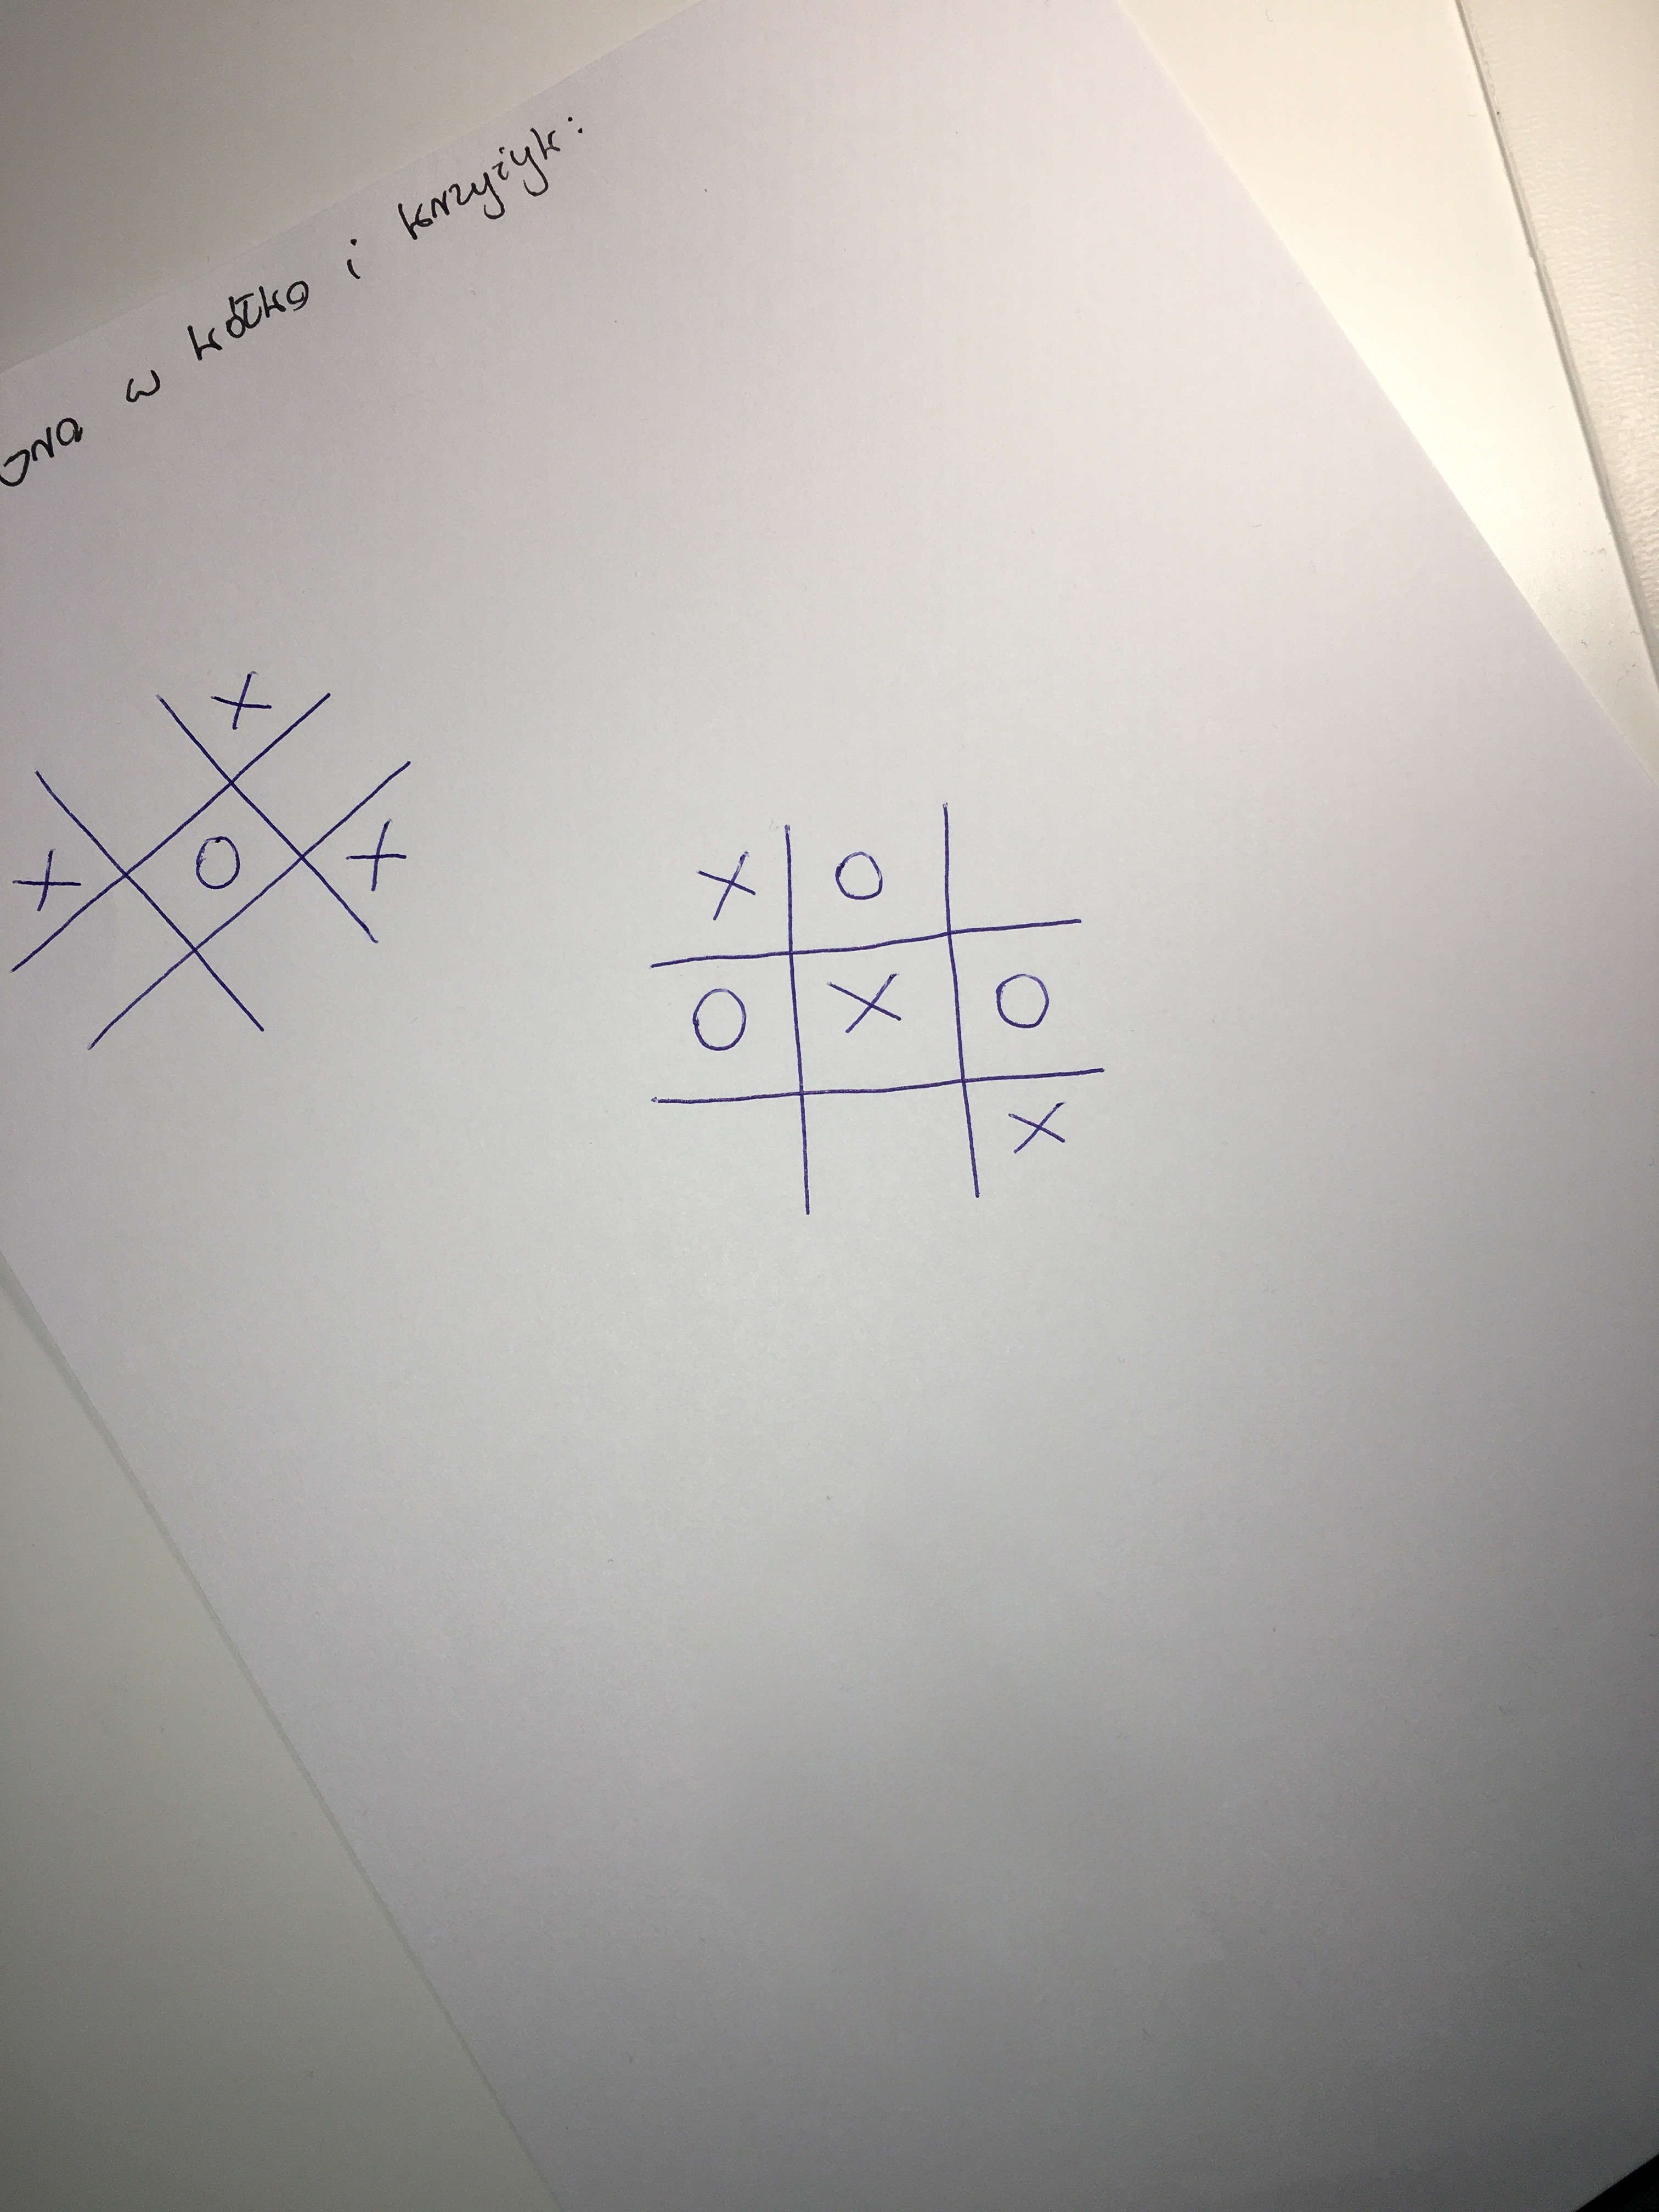 Gra w kółko i krzyżyk:
X
X O X
X O
O X O
X